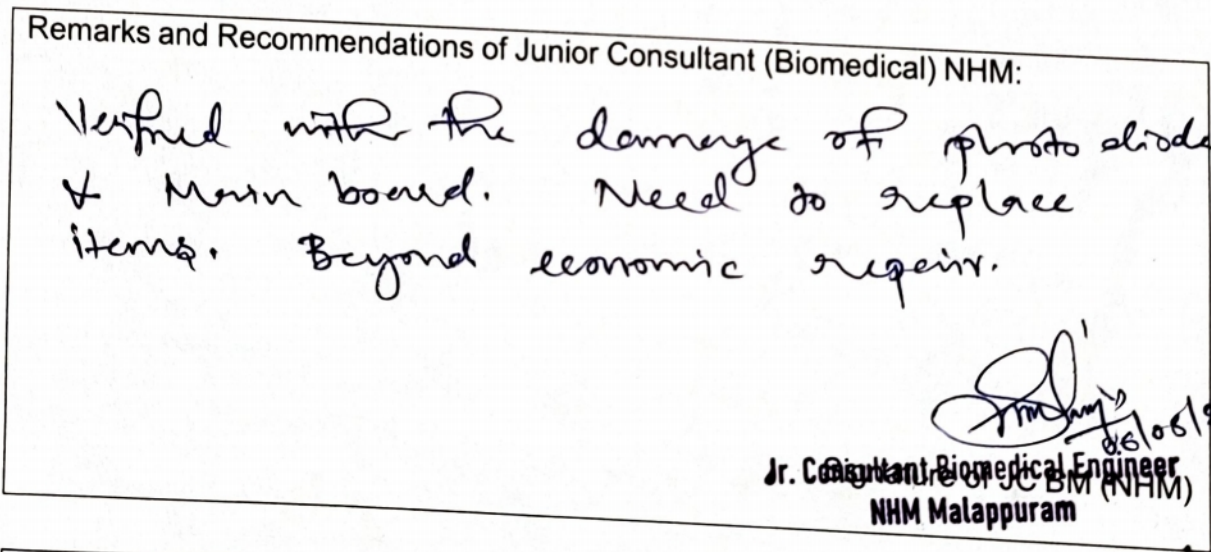 Remarks and Recommendations of Junior Consultant (Biomedical) NHM:
Verified with the damage of photo diode
& Main board. Need to replace
items. Beyond economic repair.
06/06/
Jr. Consultant Biomedical Engineer
Signature of JC BM (NHM)
NHM Malappuram